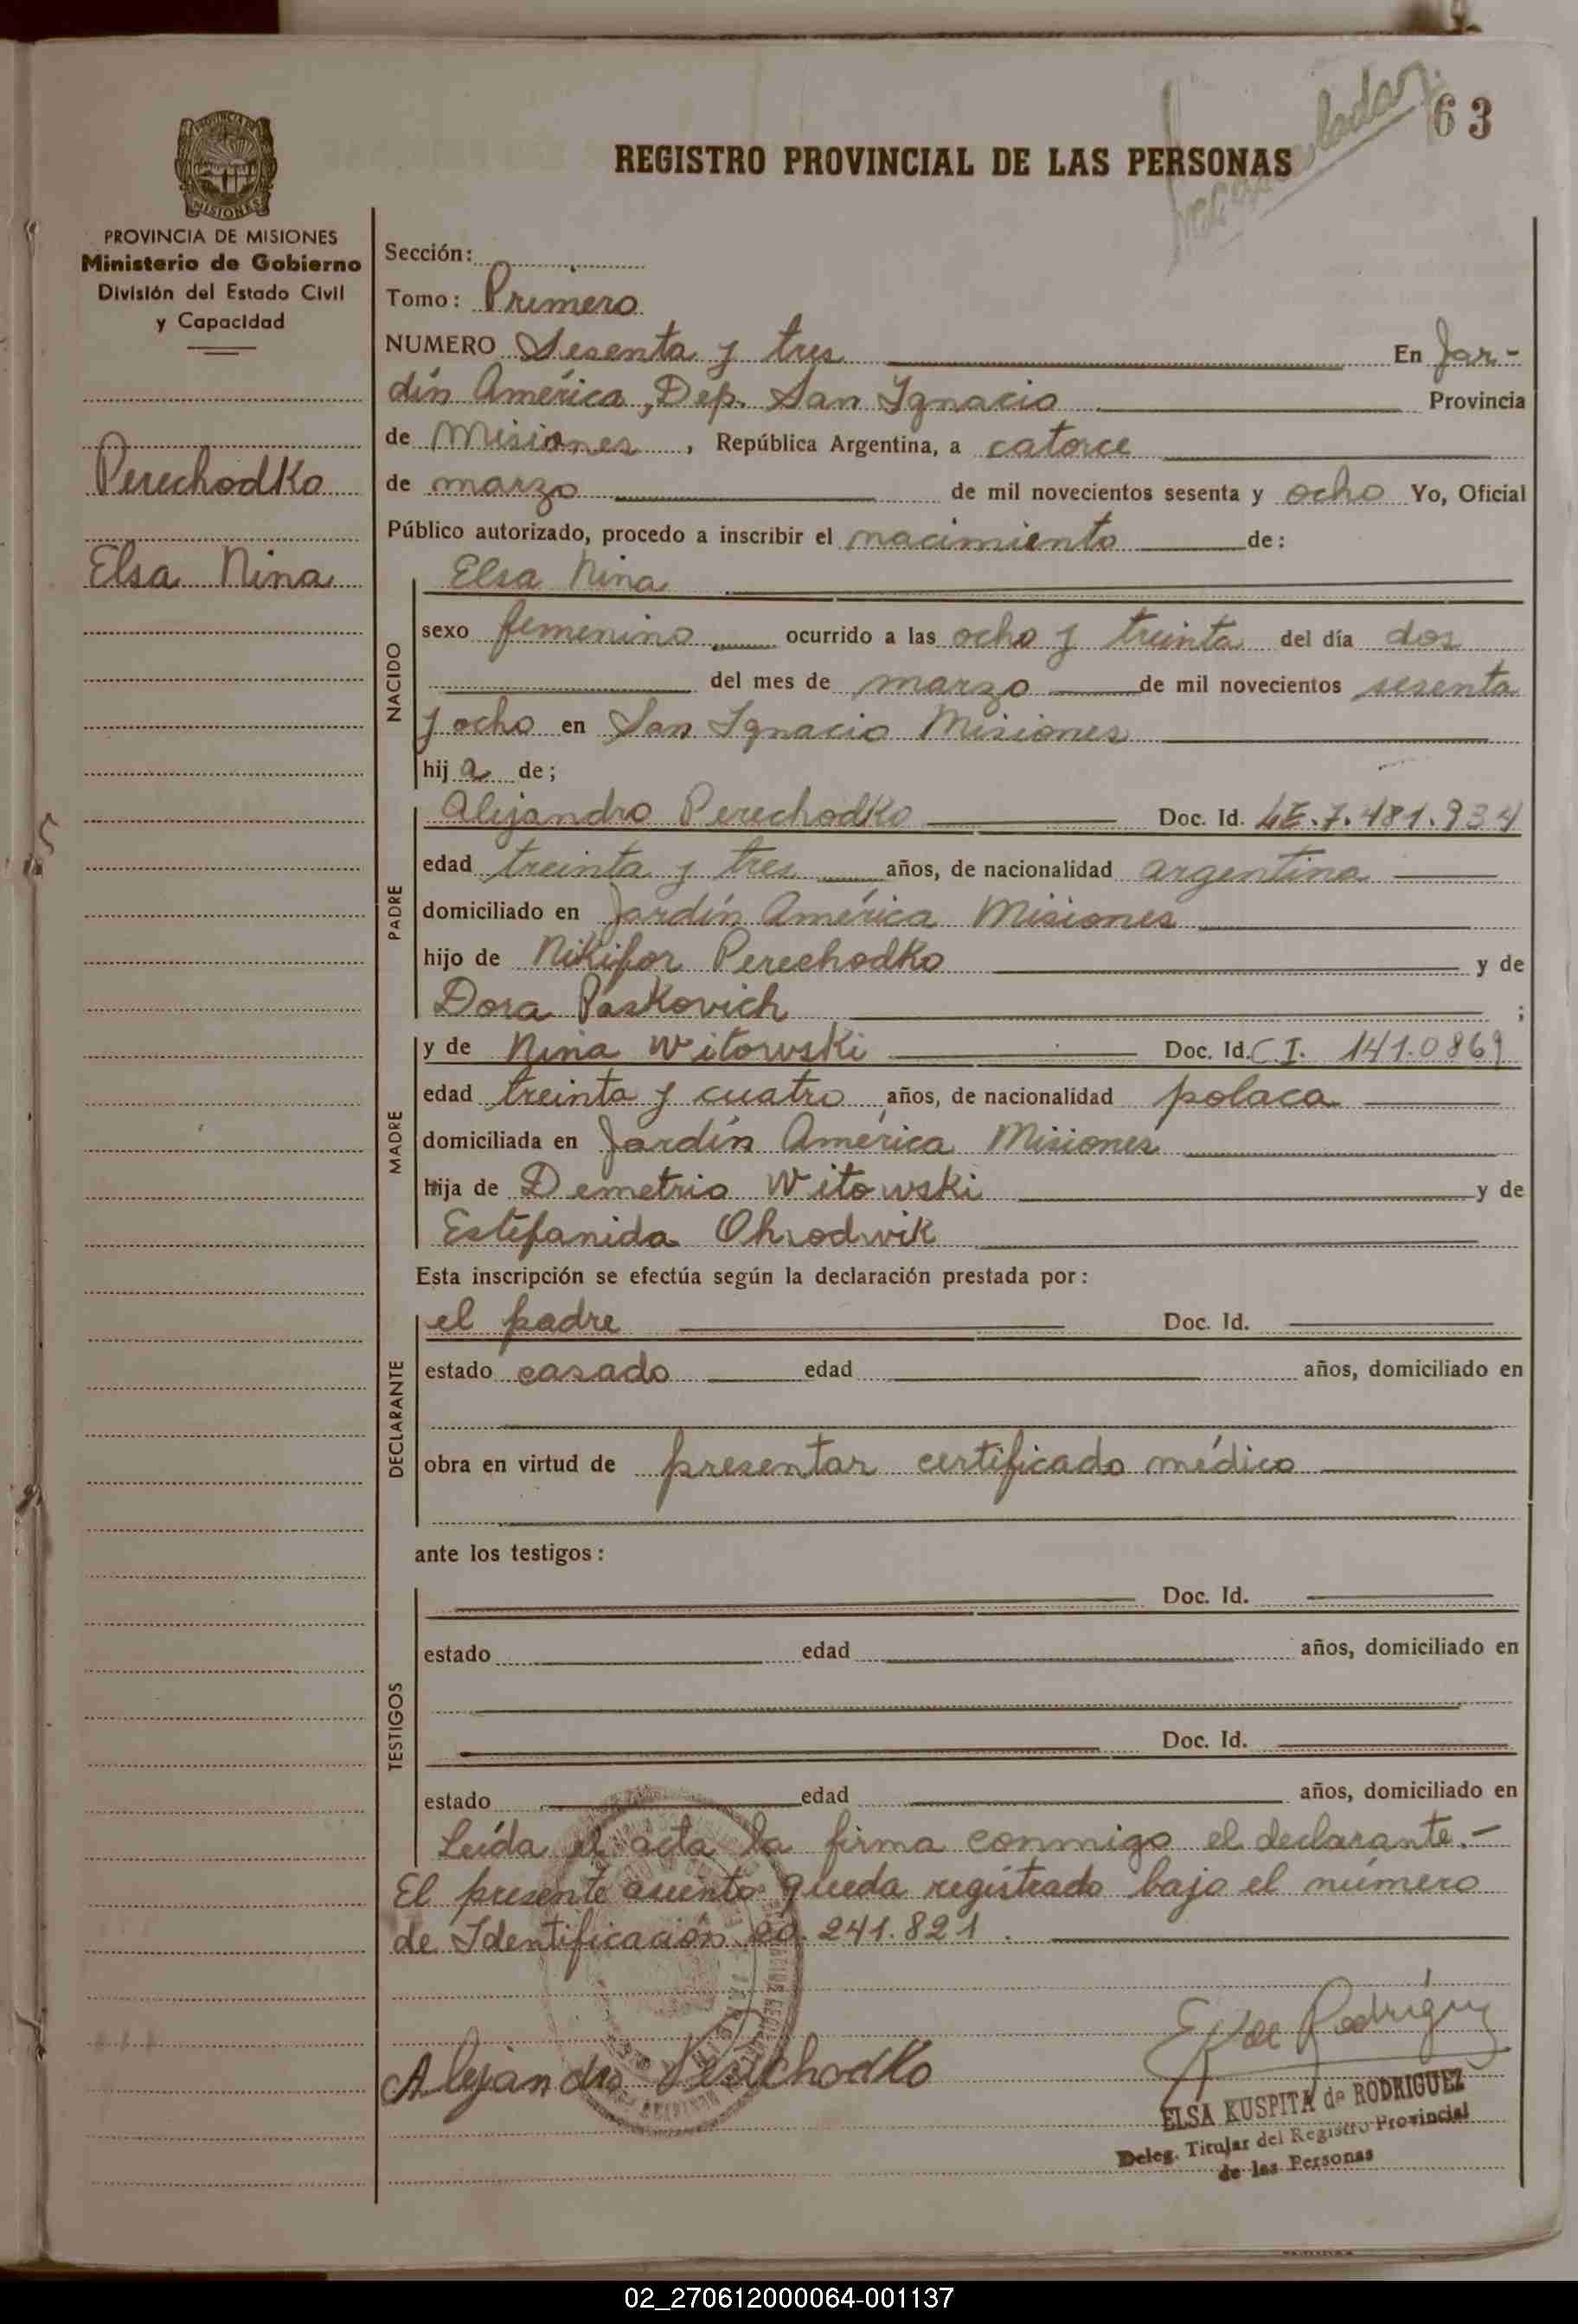 63
REGISTRO PROVINCIAL DE LAS PERSONAS
MISIONES
PROVINCIA DE MISIONES
Ministerio de Gobierno
División del Estado Civil
y Capacidad
Perechodko
Elsa Nina
Sección:
Tomo: Primero
NUMERO Sesenta y tres En Jar-
dín América, Dep. San Ignacio Provincia
de Misiones, República Argentina, a catorce
de marzo de mil novecientos sesenta y ocho Yo, Oficial
Público autorizado, procedo a inscribir el nacimiento de:
NACIDO
Elsa Nina
sexo femenino ocurrido a las ocho y treinta del día dos
del mes de marzo de mil novecientos sesenta
y ocho en San Ignacio Misiones
hija de;
PADRE
Alejandro Perechodko Doc. Id. LE.7.481.934
edad treinta y tres años, de nacionalidad argentina
domiciliado en Jardín América Misiones
hijo de Nikifor Perechodko y de
Dora Paskovich ;
MADRE
y de Nina Witowski Doc. Id. C.I. 141.0869
edad treinta y cuatro años, de nacionalidad polaca
domiciliada en Jardín América Misiones
hija de Demetrio Witowski y de
Estefanida Ohrodwik
Esta inscripción se efectúa según la declaración prestada por:
DECLARANTE
el padre Doc. Id.
estado casado edad años, domiciliado en
obra en virtud de presentar certificado médico
ante los testigos:
TESTIGOS
Doc. Id.
estado edad años, domiciliado en
Doc. Id.
estado edad años, domiciliado en
Leída el acta la firma conmigo el declarante.-
El presente asiento queda registrado bajo el número
de Identificación 20.241.821.
Alejandro Perechodko
E K de Rodríguez
ELSA KUSPITA de RODRIGUEZ
Deleg. Titular del Registro Provincial
de las Personas
02_270612000064-001137